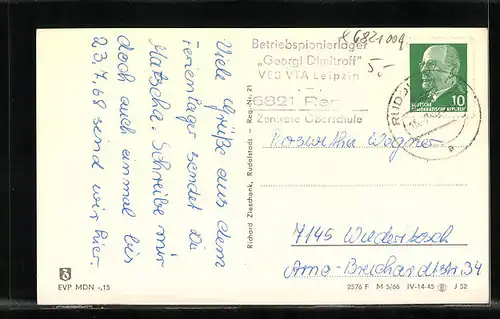 Viele Grüße aus dem
Ferienlager sendet Dir
Natscha. Schreibe mir
doch auch einmal bis
23.7.68 sind wir hier.
Betriebspionierlager
„Georgi Dimitroff"
VEB VTA Leipzig
6821 Rem
Zentrale Oberschule
6821009
5,-
DEUTSCHE
DEMOKRATISCHE REPUBLIK
10
RUDO
a
Roswitha Wagner
7145 Wiederitzsch
Arno-Bruchardtstr. 34
Richard Zieschank, Rudolstadt - Reg.-Nr. 21
EVP MDN -,15
2576 F M 5/66 IV-14-45 J 52